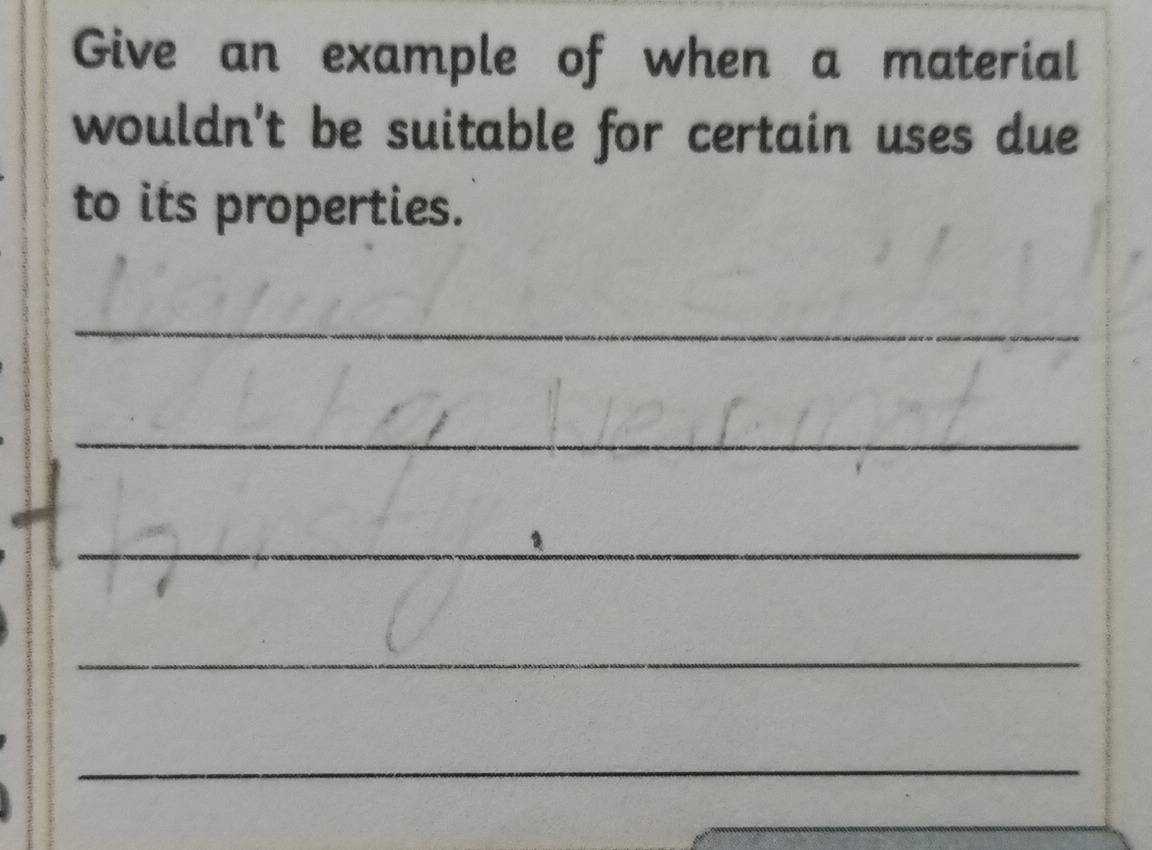 Give an example of when a material
wouldn't be suitable for certain uses due
to its properties.
liquid is
not
thirsty